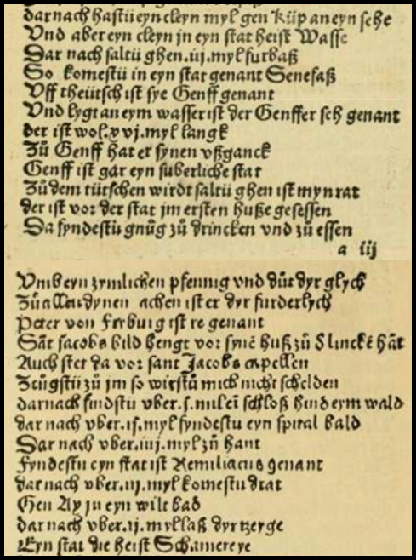 dar nach hastu eyn cleyn myl gen Küp an eyn sehe
Vnd aber eyn cleyn jn eyn stat heist Wasse
Dar nach saltu ghen .iij. myl furbaß
So komestu in eyn stat genant Senefaß
Uff theutsch ist sye Genff genant
Vnd lygt an eym wasser ist der Genffer seh genant
der ist wol .xvj. myl langk
Zu Genff hat er synen vßganck
Genff ist gar eyn suberliche stat
Zu dem tutschen wirdt saltu ghen ist myn rat
der ist vor der stat jm ersten huße gesessen
Da fyndestu gnüg zu drincken vnd zu essen
a iij
Vmb eyn zymlichen pfennig vnd düt dyr glych
Zu allen dynen achen ist er dyr furderlych
Peter von Friburg ist re genant
Sãt Jacobs bild hengt vor synẽ huß zu d linckẽ hãt
Auch ster da vor sant Jacobs capellen
Zeügstu zu jm so wirstu mich nicht schelden
darnach findstu vber .j. mileñ schloß hind eym wald
dar nach vber .ij. myl fyndestu eyn spital bald
Dar nach vber .iiij. myl zu hant
Fyndestu eyn stat ist Remiliacus genant
dar nach vber .iij. myl komestu drat
Gen Ay jn eyn wilt bad
dar nach vber .ij. myl laß dyr tzerge
Eyn stat die heist Schamereye